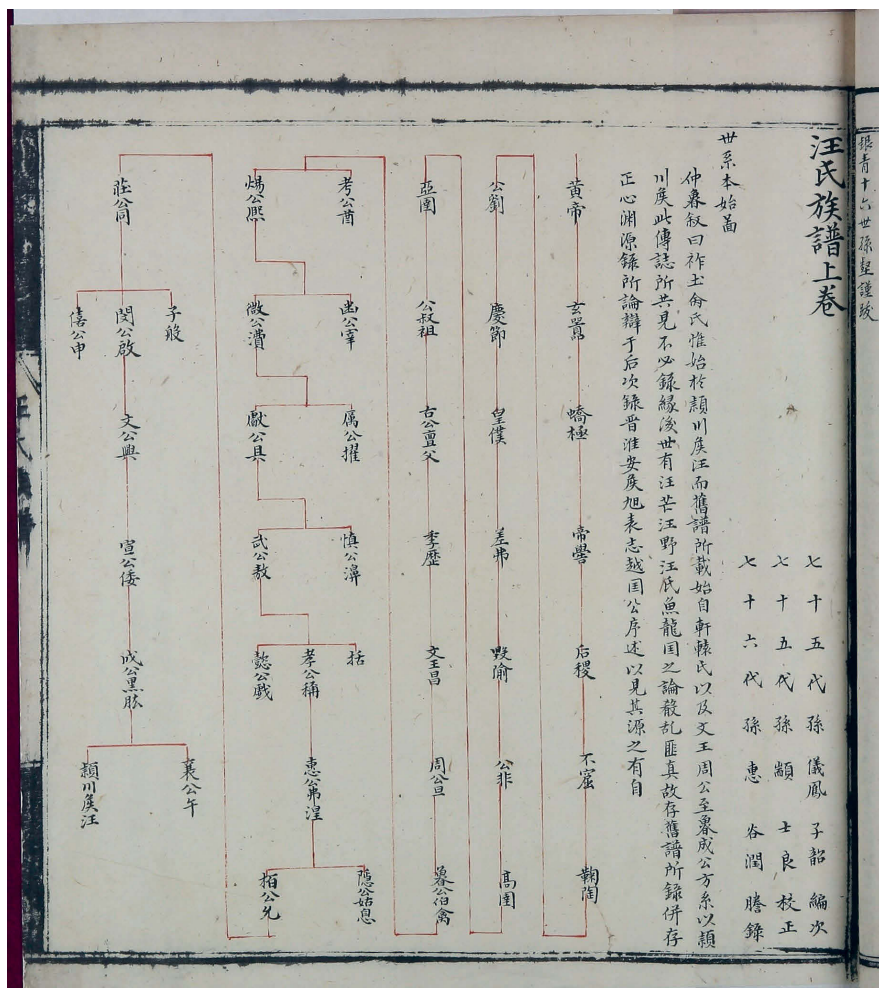 銀青十六世孫墅謹跋
汪氏族譜上卷
七十五代孫儀鳳子韶編次
七十五代孫顓士良校正
七十六代孫惠谷潤謄錄
世系本始啚
仲魯叙曰祚土命氏惟始於頴川矦汪而舊譜所載始自軒轅氏以及文王周公至魯成公方系以頴
川矦此傳誌所共見不必錄緣後世有汪芒汪野汪厎魚龍囯之論殽乱匪真故存舊譜所錄併存
正心渊源録所論辯于后次録晋淮安矦旭表志越囯公序述以見其源之有自
黄帝 玄嚣 蟜極 帝嚳 后稷 不窋 鞠陶
公劉 慶節 皇僕 差弗 毀隃 公非 高圉
亞圉 公叔祖 古公亶父 季歷 文王昌 周公旦 魯公伯禽
考公酋 幽公宰 厲公擢 慎公濞 括 隠公姑息
煬公熈 微公潰 獻公具 武公敖 懿公戲 孝公稱 惠公弗湟 桓公允
莊公同 子般 閔公啟 僖公申 文公興 宣公倭 成公黑肱 襄公午 頴川矦汪